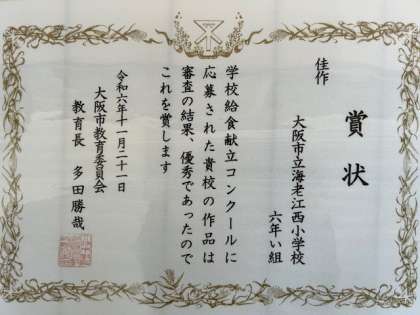 賞状
佳作
大阪市立海老江西小学校
六年い組
学校給食献立コンクールに
応募された貴校の作品は
審査の結果、優秀であったので
これを賞します
令和六年十一月二十一日
大阪市教育委員会
教育長 多田勝哉